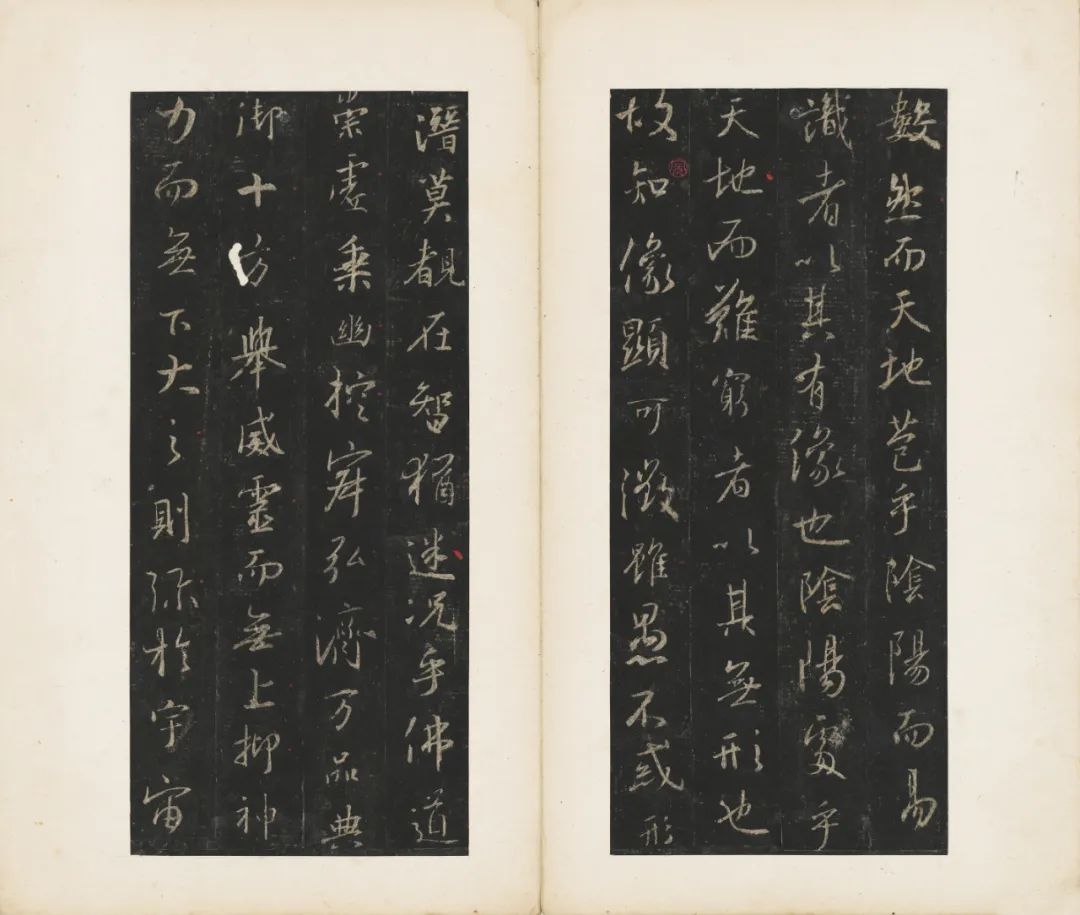 數然而天地苞乎陰陽而易
識者以其有像也陰陽處乎
天地而難窮者以其無形也
故知像顯可徵雖愚不惑形
潛莫覩在智猶迷況乎佛道
崇虛乘幽控寂弘濟万品典
御十方舉威靈而無上抑神
力而無下大之則彌於宇宙